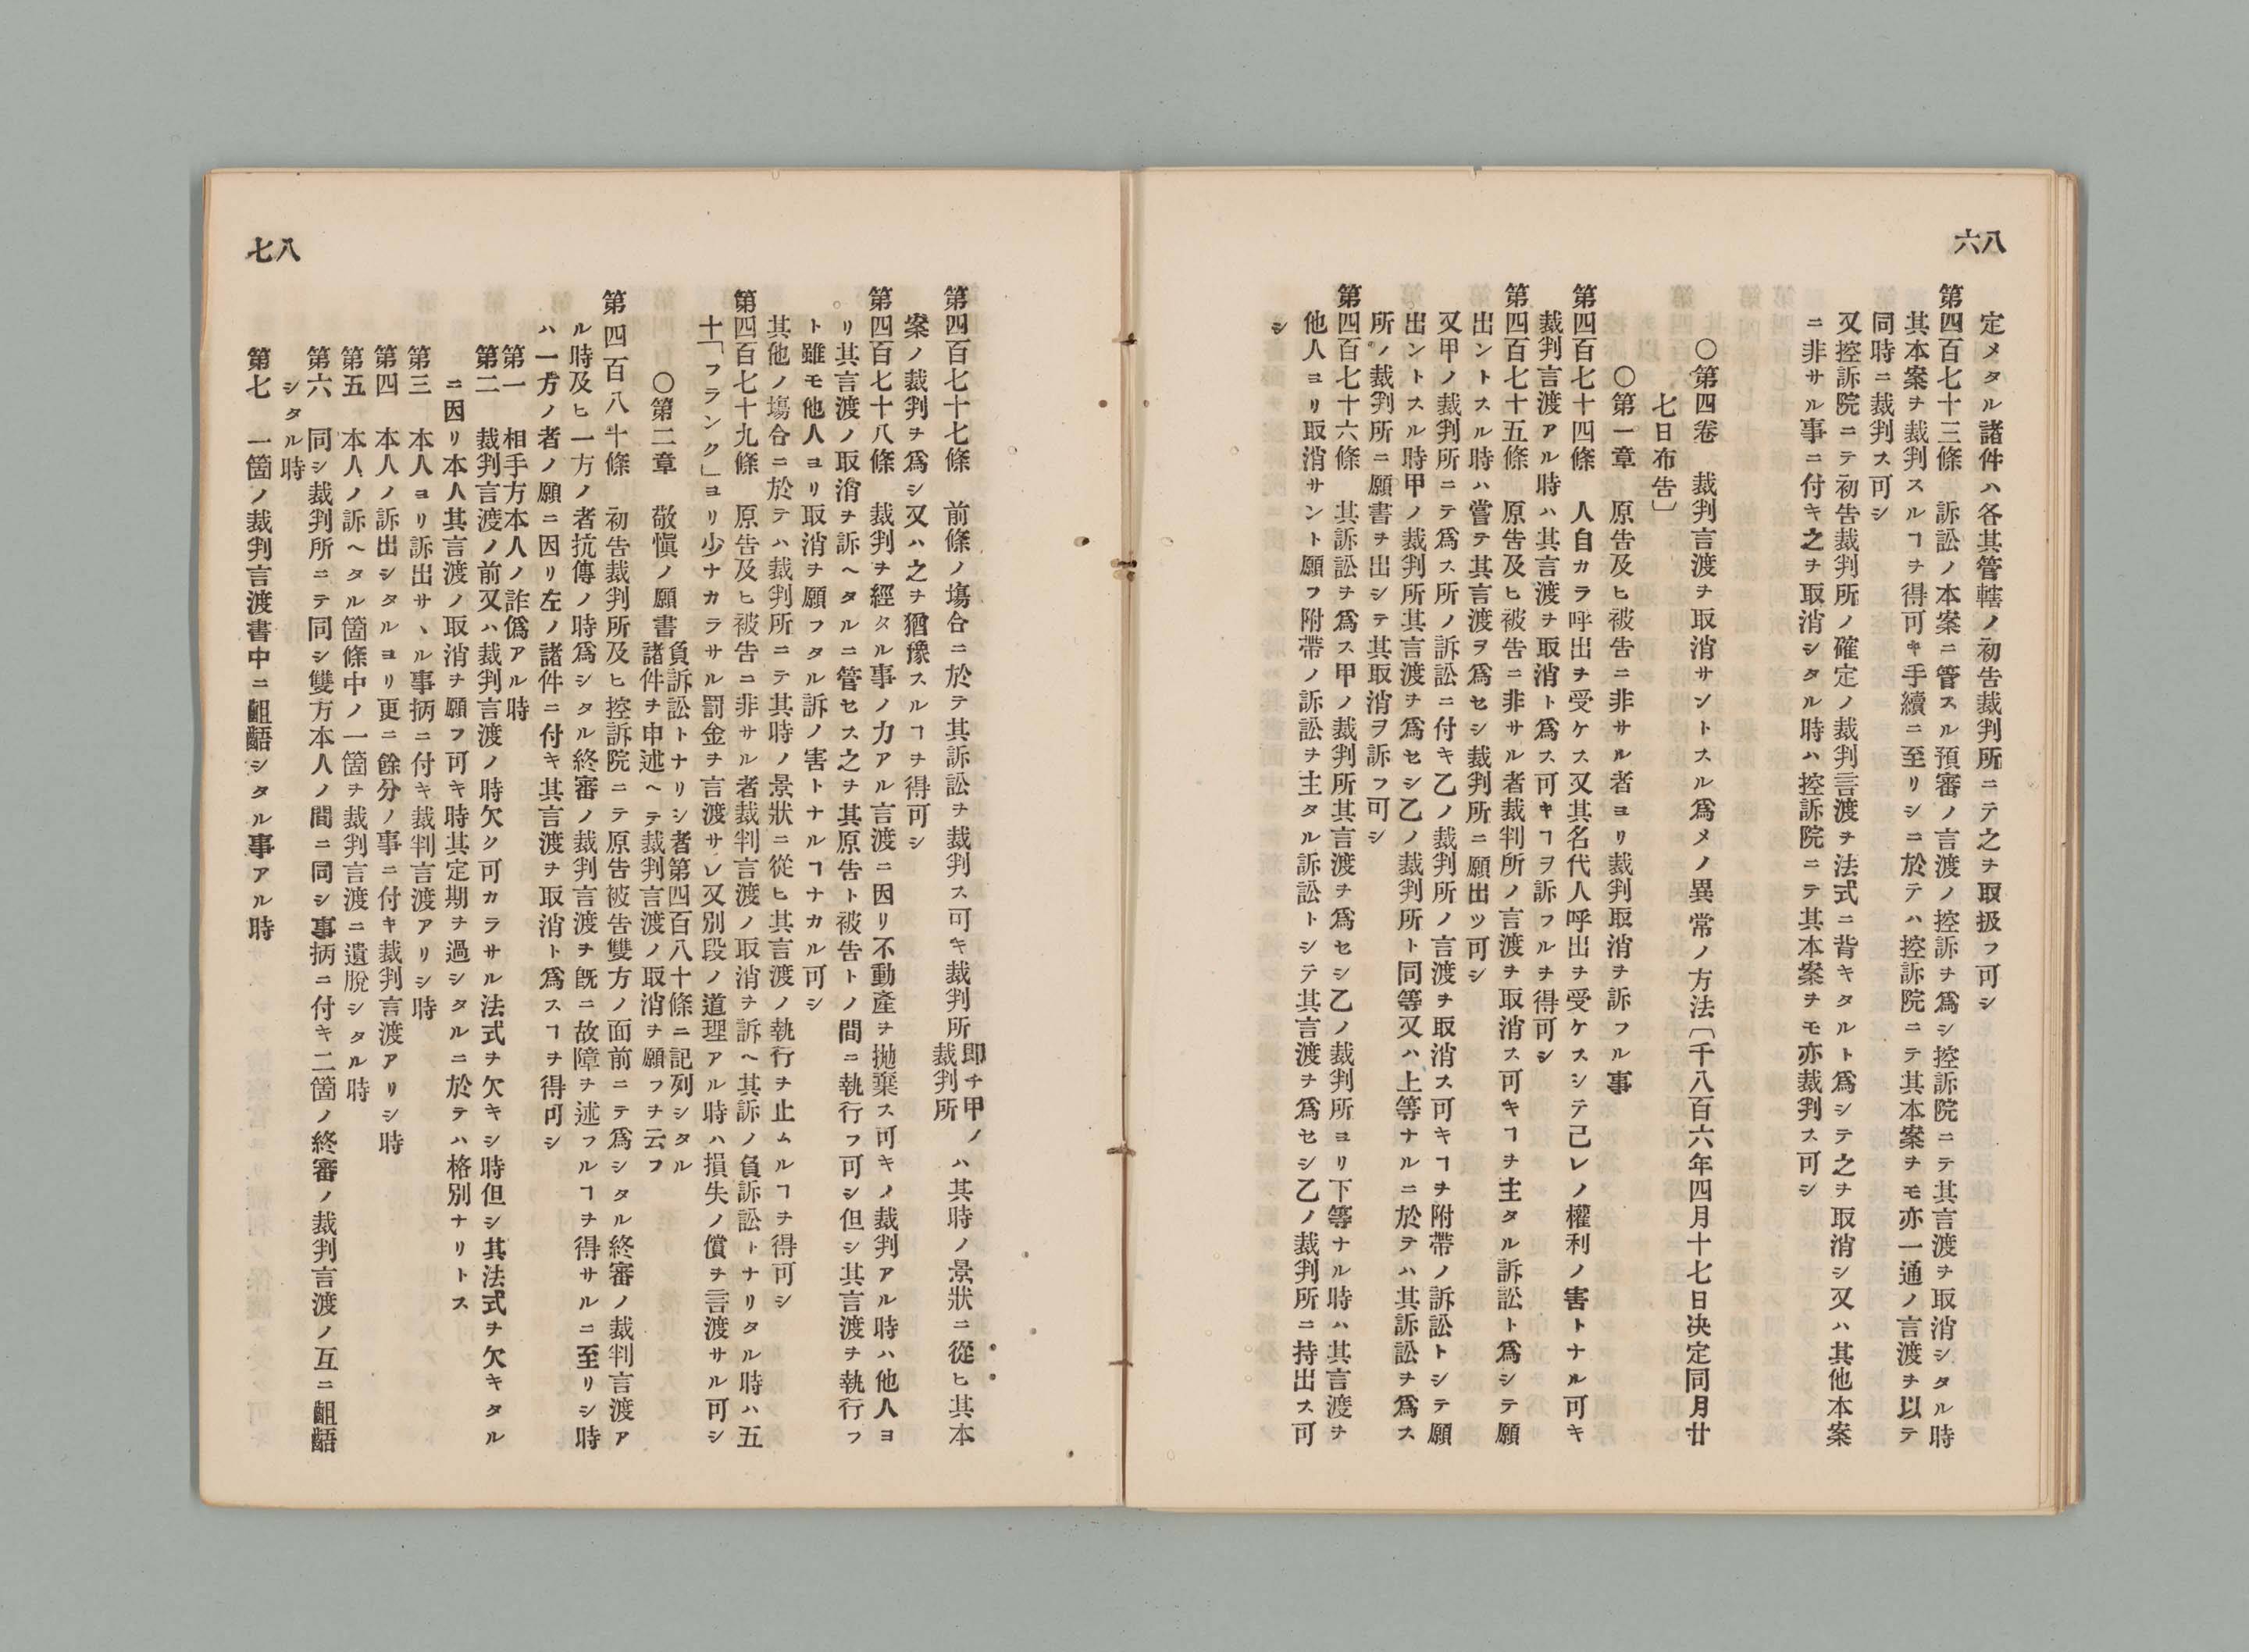 八六
定メタル諸件ハ各其管轄ノ初告裁判所ニテ之ヲ取扱フ可シ
第四百七十三條　訴訟ノ本案ニ管スル預審ノ言渡ノ控訴ヲ爲シ控訴院ニテ其言渡ヲ取消シタル時
其本案ヲ裁判スルヿヲ得可キ手續ニ至リシニ於テハ控訴院ニテ其本案ヲモ亦一通ノ言渡ヲ以テ
同時ニ裁判ス可シ
又控訴院ニテ初告裁判所ノ確定ノ裁判言渡ヲ法式ニ背キタルト爲シテ之ヲ取消シ又ハ其他本案
ニ非サル事ニ付キ之ヲ取消シタル時ハ控訴院ニテ其本案ヲモ亦裁判ス可シ
〇第四卷　裁判言渡ヲ取消サントスル爲メノ異常ノ方法〔千八百六年四月十七日决定同月廿
七日布告〕
〇第一章　原告及ヒ被告ニ非サル者ヨリ裁判取消ヲ訴フル事
第四百七十四條　人自カラ呼出ヲ受ケス又其名代人呼出ヲ受ケスシテ己レノ權利ノ害トナル可キ
裁判言渡アル時ハ其言渡ヲ取消ト爲ス可キヿヲ訴フルヲ得可シ
第四百七十五條　原告及ヒ被告ニ非サル者裁判所ノ言渡ヲ取消ス可キヿヲ主タル訴訟ト爲シテ願
出ントスル時ハ嘗テ其言渡ヲ爲セシ裁判所ニ願出ツ可シ
又甲ノ裁判所ニテ爲ス所ノ訴訟ニ付キ乙ノ裁判所ノ言渡ヲ取消ス可キヿヲ附帶ノ訴訟トシテ願
出ントスル時甲ノ裁判所其言渡ヲ爲セシ乙ノ裁判所ト同等又ハ上等ナルニ於テハ其訴訟ヲ爲ス
所ノ裁判所ニ願書ヲ出シテ其取消ヲ訴フ可シ
第四百七十六條　其訴訟ヲ爲ス甲ノ裁判所其言渡ヲ爲セシ乙ノ裁判所ヨリ下等ナル時ハ其言渡ヲ
他人ヨリ取消サント願フ附帶ノ訴訟ヲ主タル訴訟トシテ其言渡ヲ爲セシ乙ノ裁判所ニ持出ス可
シ
八七
第四百七十七條　前條ノ塲合ニ於テ其訴訟ヲ裁判ス可キ裁判所即チ甲ノ裁判所ハ其時ノ景狀ニ從ヒ其本
案ノ裁判ヲ爲シ又ハ之ヲ猶豫スルヿヲ得可シ
第四百七十八條　裁判ヲ經タル事ノ力アル言渡ニ因リ不動產ヲ抛棄ス可キノ裁判アル時ハ他人ヨ
リ其言渡ノ取消ヲ訴ヘタルニ管セス之ヲ其原告ト被告トノ間ニ執行フ可シ但シ其言渡ヲ執行フ
ト雖モ他人ヨリ取消ヲ願フタル訴ノ害トナルヿナカル可シ
其他ノ塲合ニ於テハ裁判所ニテ其時ノ景狀ニ從ヒ其言渡ノ執行ヲ止ムルヿヲ得可シ
第四百七十九條　原告及ヒ被告ニ非サル者裁判言渡ノ取消ヲ訴ヘ其訴ノ負訴訟トナリタル時ハ五
十「フランク」ヨリ少ナカラサル罰金ヲ言渡サレ又別段ノ道理アル時ハ損失ノ償ヲ言渡サル可シ
〇第二章　敬愼ノ願書負訴訟トナリシ者第四百八十條ニ記列シタル諸件ヲ申述ヘテ裁判言渡ノ取消ヲ願フヲ云フ
第四百八十條　初告裁判所及ヒ控訴院ニテ原告被告雙方ノ面前ニテ爲シタル終審ノ裁判言渡ア
ル時及ヒ一方ノ者抗傳ノ時爲シタル終審ノ裁判言渡ヲ既ニ故障ヲ述フルヿヲ得サルニ至リシ時
ハ一方ノ者ノ願ニ因リ左ノ諸件ニ付キ其言渡ヲ取消ト爲スヿヲ得可シ
第一　相手方本人ノ詐僞アル時
第二　裁判言渡ノ前又ハ裁判言渡ノ時欠ク可カラサル法式ヲ欠キシ時但シ其法式ヲ欠キタル
ニ因リ本人其言渡ノ取消ヲ願フ可キ時其定期ヲ過シタルニ於テハ格別ナリトス
第三　本人ヨリ訴出サヽル事柄ニ付キ裁判言渡アリシ時
第四　本人ノ訴出シタルヨリ更ニ餘分ノ事ニ付キ裁判言渡アリシ時
第五　本人ノ訴ヘタル箇條中ノ一箇ヲ裁判言渡ニ遺脫シタル時
第六　同シ裁判所ニテ同シ雙方本人ノ間ニ同シ事柄ニ付キ二箇ノ終審ノ裁判言渡ノ互ニ齟齬
シタル時
第七　一箇ノ裁判言渡書中ニ齟齬シタル事アル時